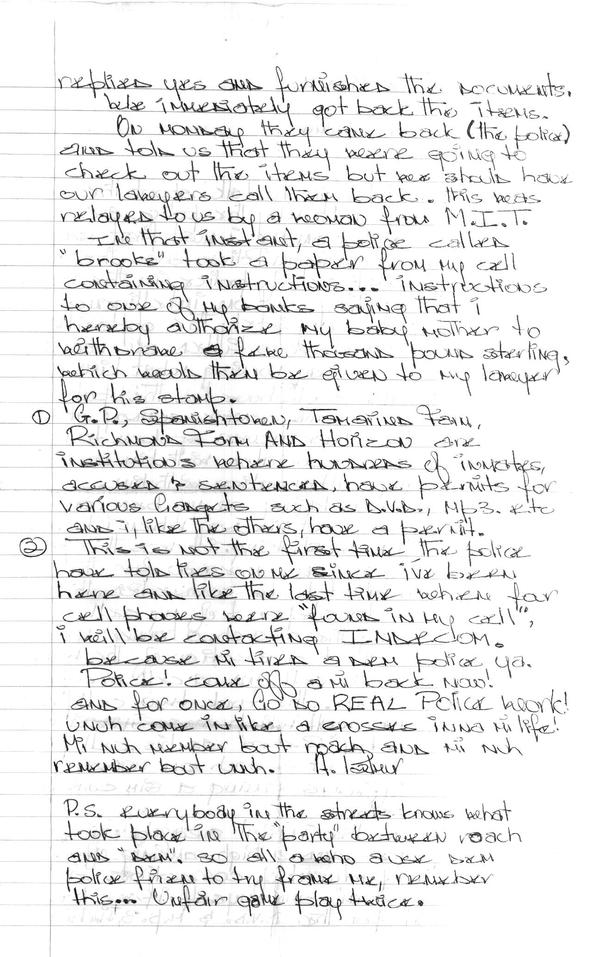 replied yes and furnished the documents.
We immediately got back the items.
On Monday they came back (the police)
and told us that they were going to
check out the items but we should have
our lawyers call them back. this was
relayed to us by a woman from M.I.T.
In that instant, a police called
"brooks" took a paper from my cell
containing instructions... instructions
to one of my banks saying that i
hereby authorize my baby mother to
withdraw a few thousand pound sterling,
which would then be given to my lawyer
for his stamp.
① G.P., Spanishtown, Tamarind Farm,
Richmond Farm AND Horizon are
institutions where hundreds of inmates,
accused & sentenced, have permits for
various gadgets such as D.V.D., Mp3. etc
and i, like the others, have a permit.
② This is not the first time the police
have told lies on me since i've been
here and like the last time when four
cell phones were "found in my cell",
i will be contacting INDECOM.
because mi tired a dem police ya.
Police! come off a mi back now!
and for once, GO DO REAL Police work!
unuh come in like a crosses inna mi life!
Mi nuh member bout roach and mi nuh
remember bout unuh. A.
P.S. everybody in the streets knows what
took place in the "party" between roach
and "dem". so all a who a use dem
police frien to try frame me, remember
this... Unfair game play twice.